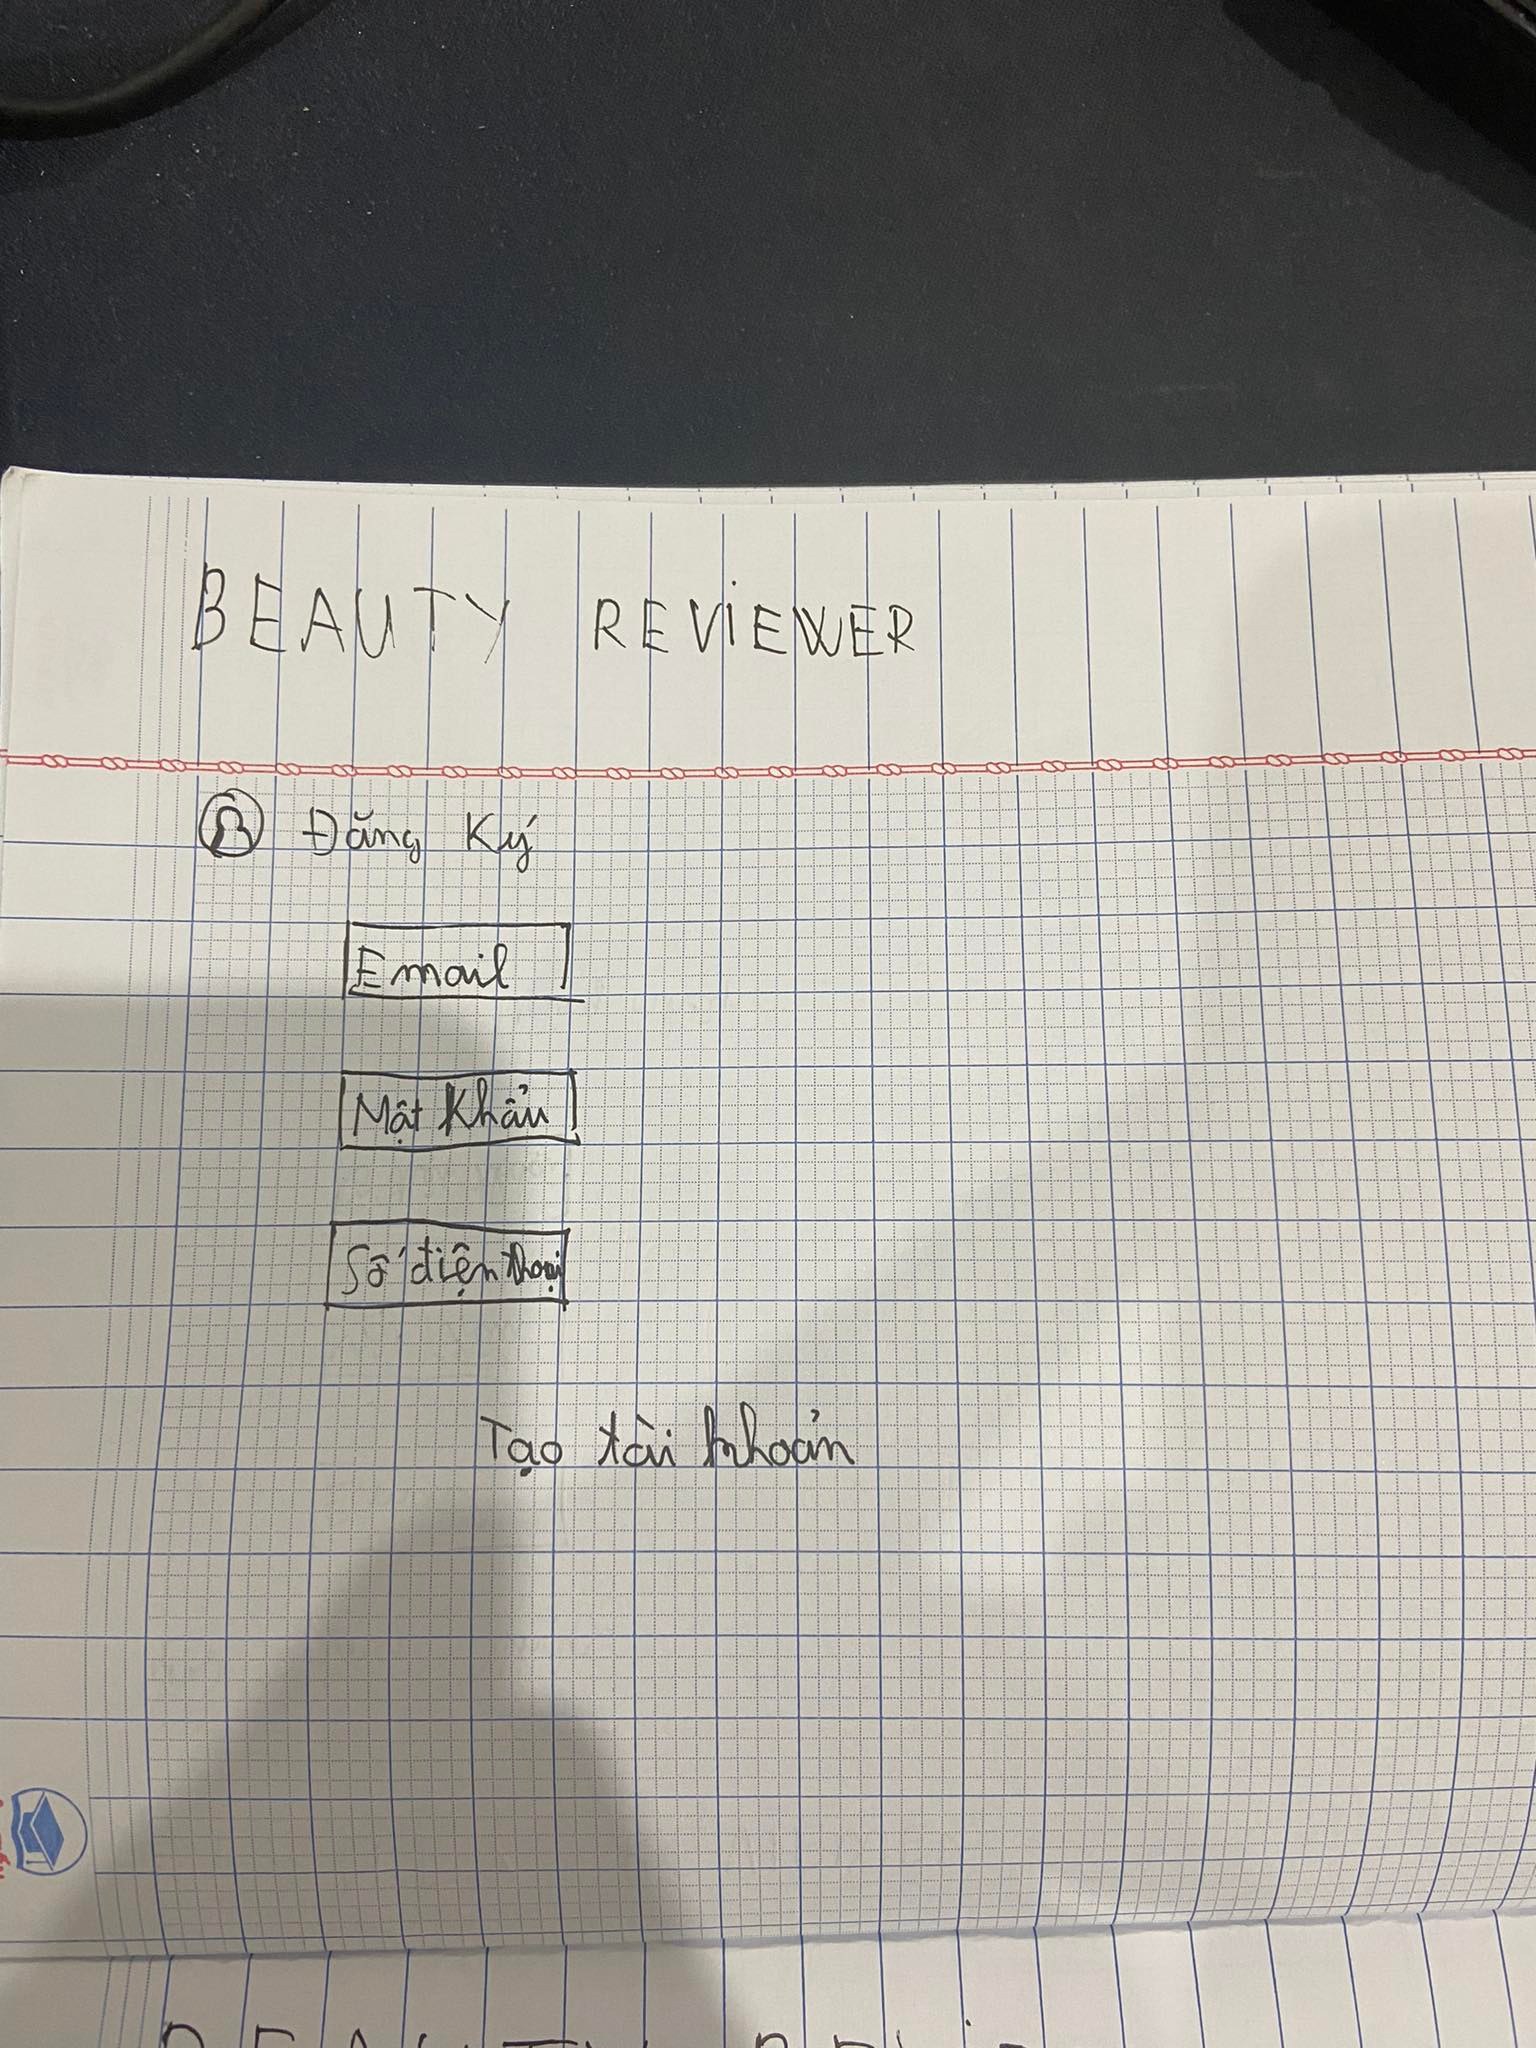 BEAUTY REVIEWER
Đăng Ký
Email
Mật Khẩu
Số điện thoại
Tạo tài khoản